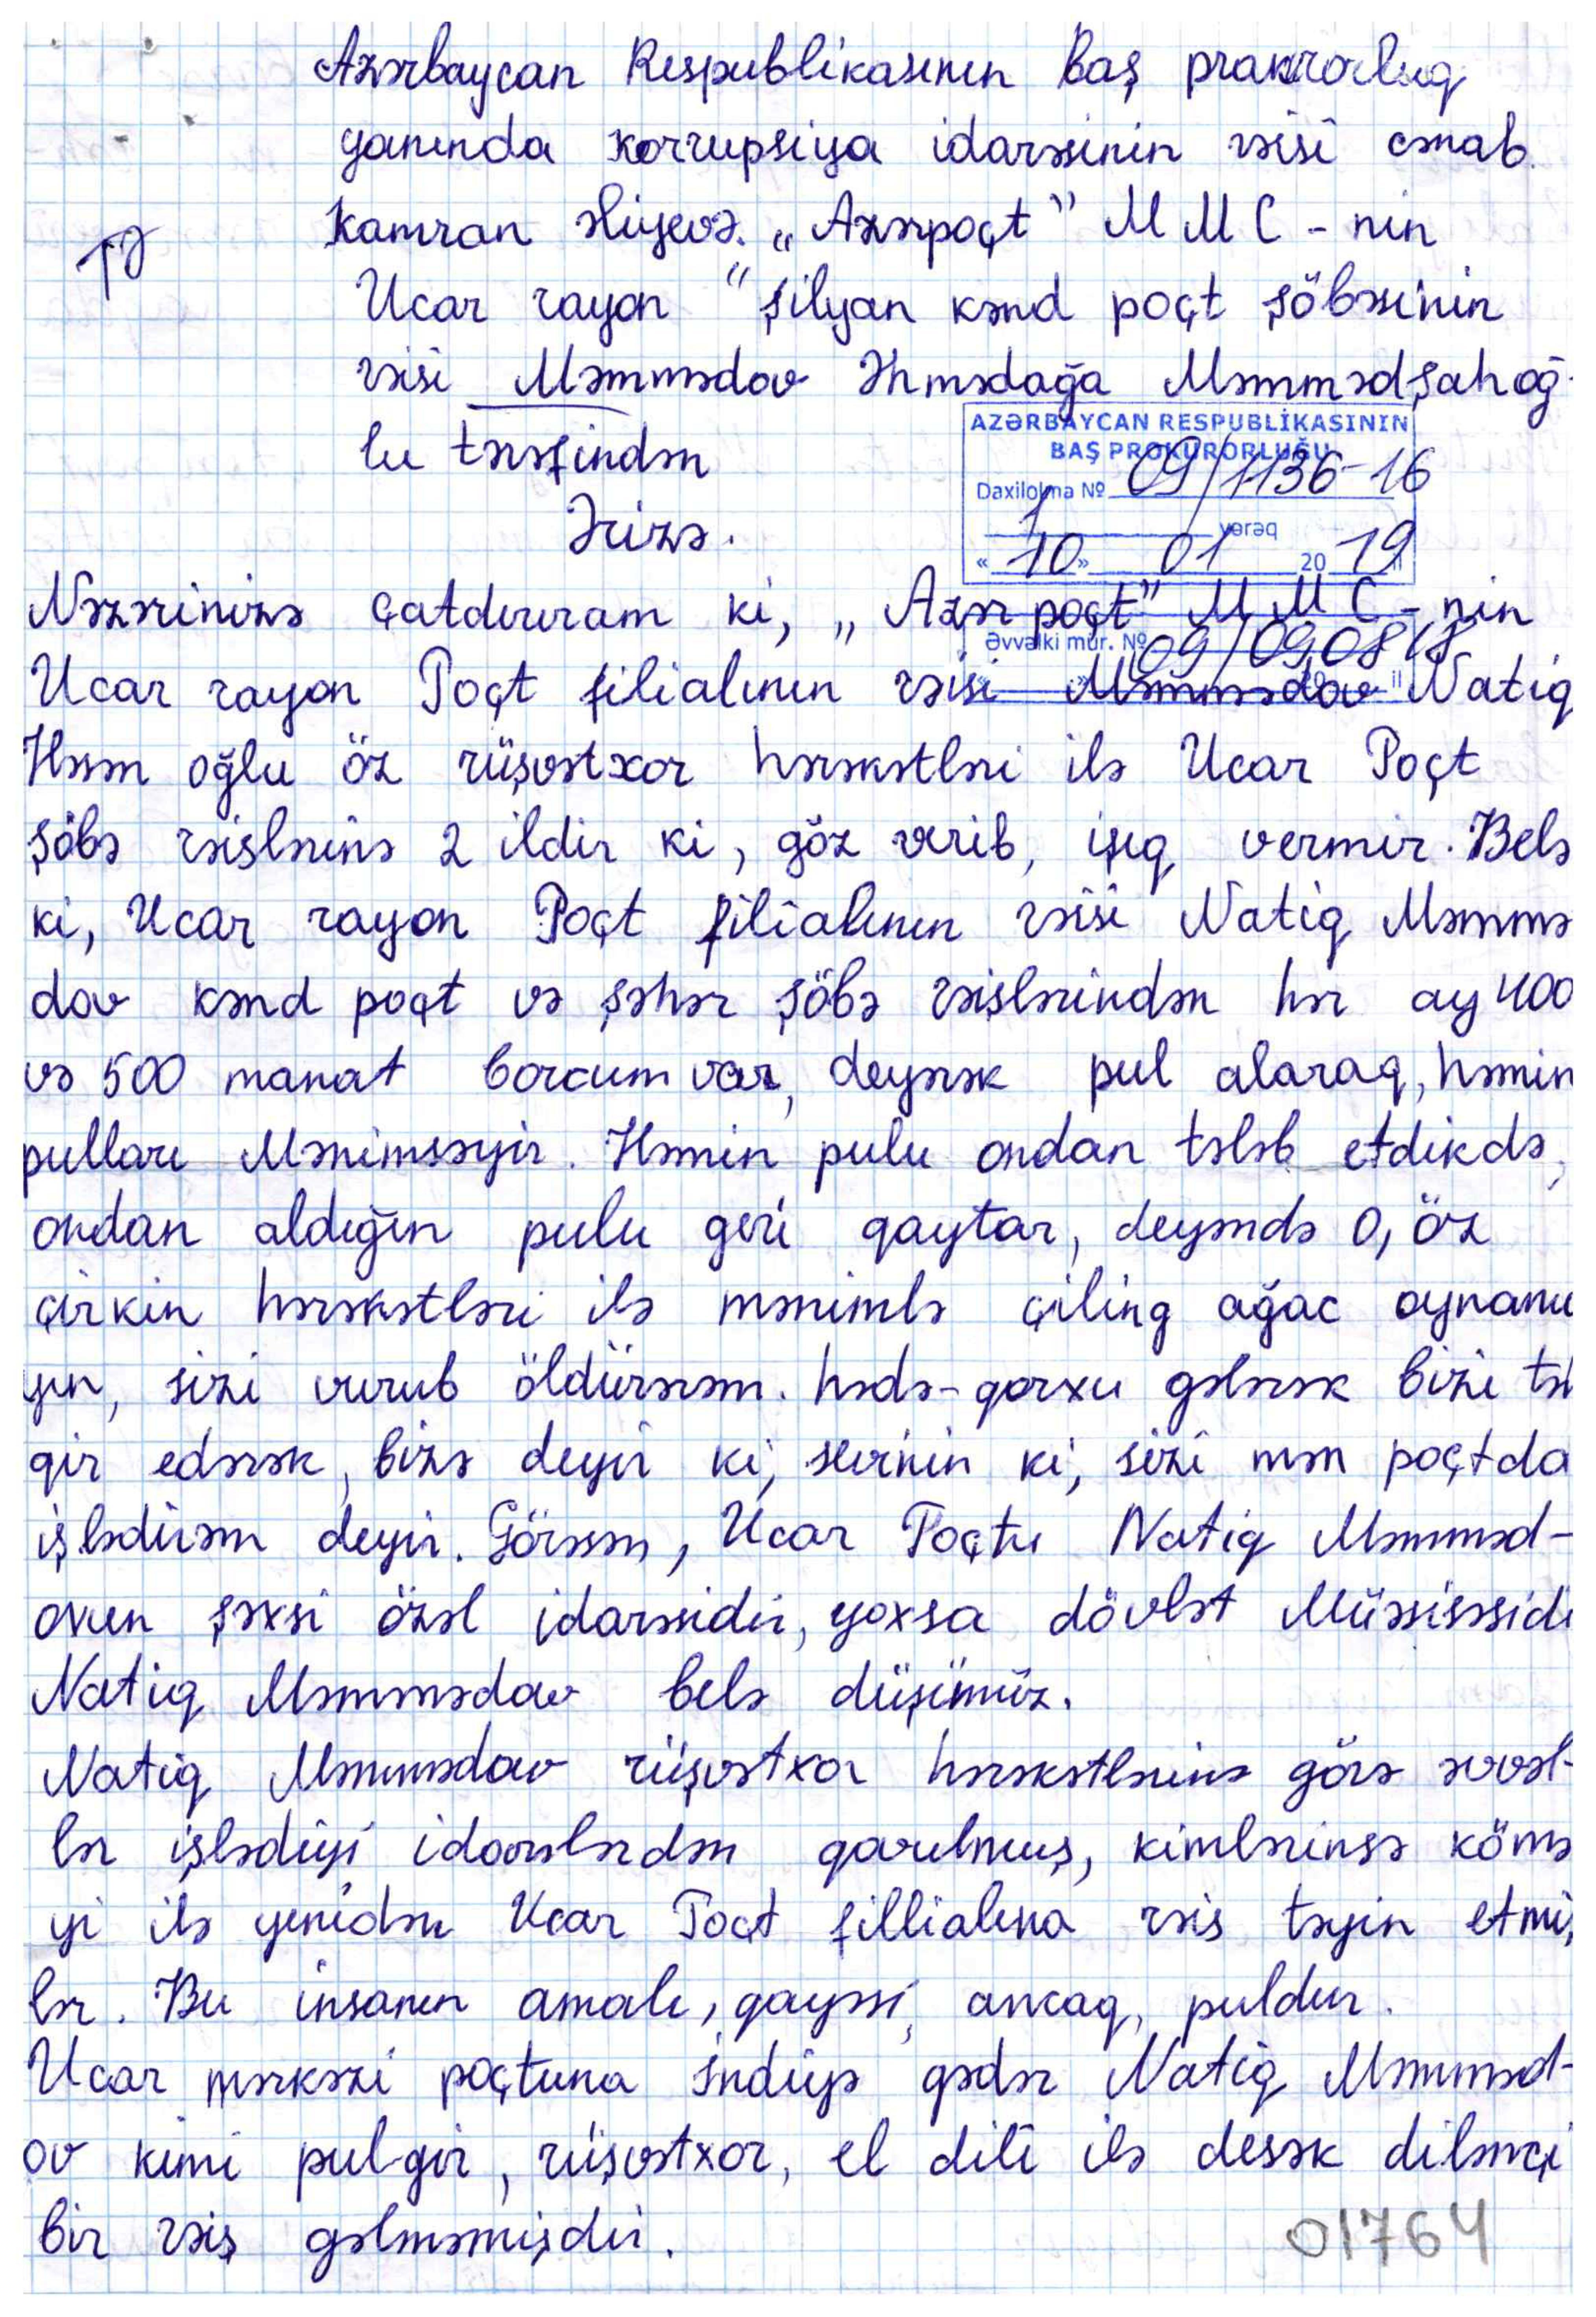 Azərbaycan Respublikasının Baş prakrorluq
yanında korrupsiya idarəsinin rəisi cənab
Kamran Əliyevə. „Azərpoçt” MMC-nin
Ucar rayon “Şilyan kənd poçt şöbəsinin
rəisi Məmmədov Əhmədağa Məmmədşah oğ-
lu tərəfindən
AZƏRBAYCAN RESPUBLİKASININ
BAŞ PROKURORLUĞU
Daxilolma № 09/1136-16
1 vərəq
«10» 01 2019 il
Ərizə.
Nəzərinizə çatdırıram ki, „Azər poçt” MMC-nin
Əvvəlki mür. № 09/0908 18
Ucar rayon Poçt filialının rəisi Məmmədov Natiq
Həsən oğlu öz rüşvətxor hərəkətləri ilə Ucar Poçt
şöbə rəislərinə 2 ildir ki, göz verib, işıq vermir. Belə
ki, Ucar rayon Poçt filialının rəisi Natiq Məmmə
dov kənd poçt və şəhər şöbə rəislərindən hər ay 400
və 500 manat borcum var, deyərək pul alaraq, həmin
pulları Mənimsəyir. Həmin pulu ondan tələb etdikdə,
ondan aldığın pulu geri qaytar, deyəndə O, öz
çirkin hərəkətləri ilə mənimlə çiling ağac oynamı
yın, sizi vurub öldürərəm. hədə-qorxu gələrək bizi təh
qir edərək, bizə deyir ki, sevinin ki, sizi mən poçtda
işlədirəm deyir. Görəsən, Ucar Poçtu Natiq Məmməd-
ovun şəxsi özəl idarəsidir, yoxsa dövlət Müəssisəsidi
Natiq Məmmədov belə düşünmüz.
Natiq Məmmədov rüşvətxor hərəkətlərinə görə əvvəl-
lər işlədiyi idarələrdən qovulmuş, kimlərinsə kömə
yi ilə yenidən Ucar Poçt fillialına rəis təyin etmiş
lər. Bu insanın amalı, qayəsi, ancaq, puldur.
Ucar mərkəzi poçtuna indiyə qədər Natiq Məmməd-
ov kimi pulgir, rüşvətxor, el dili ilə desək dilənçi
bir rəis gəlməmişdir.
01764